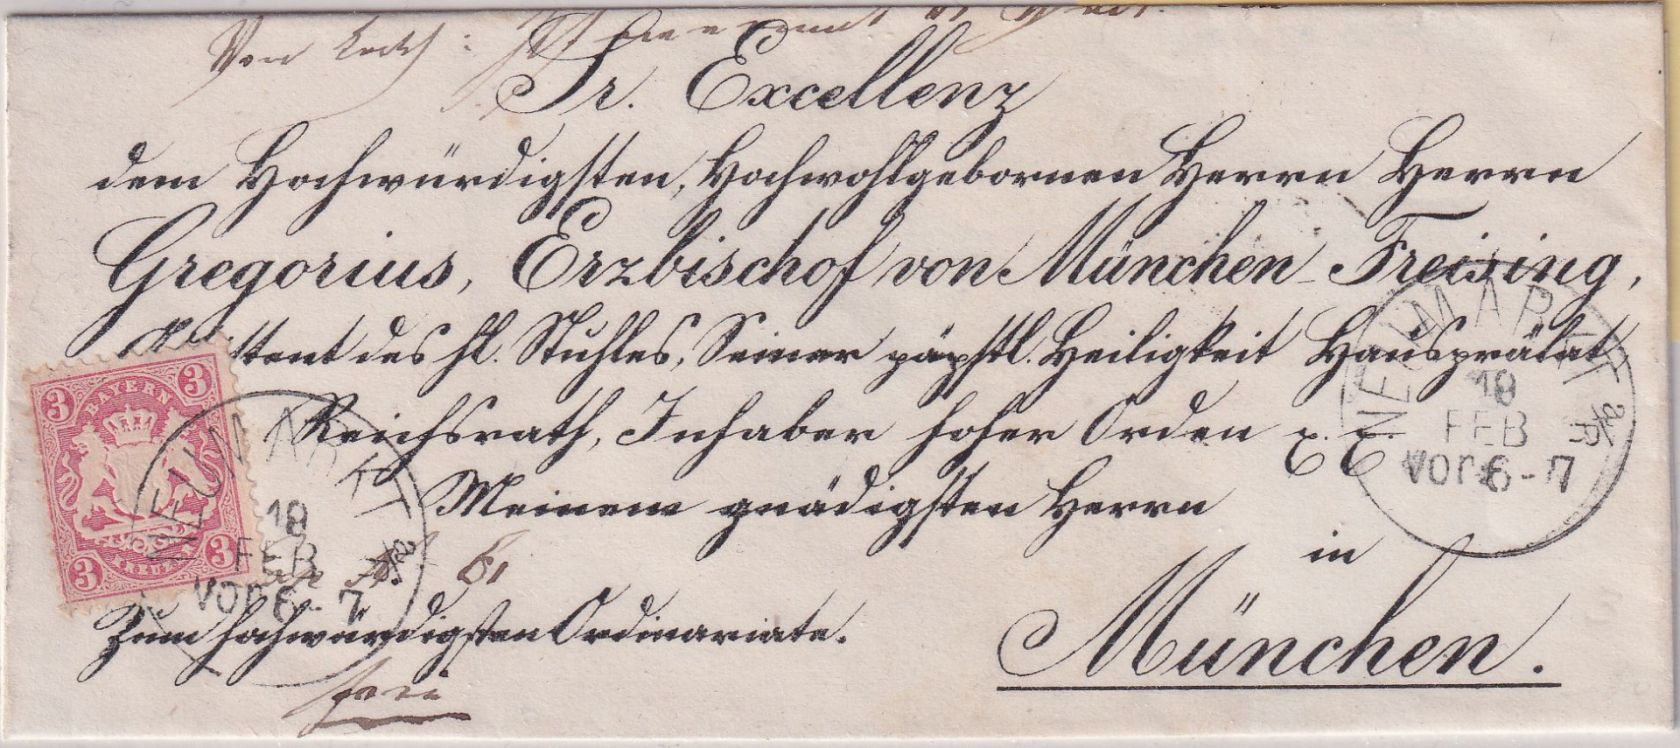 Sr. Excellenz
dem Hochwürdigsten, Hochwohlgebornen Herrn Herrn
Gregorius, Erzbischof von München-Freising,
des hl. Stuhles, Seiner päpstl. Heiligkeit Hausprälat
Reichsrath, Inhaber hoher Orden
Meinem gnädigsten Herrn
in
München.
Zum hochwürdigsten Ordinariate.
frei
3 BAYERN 3
3 KREUZER 3
NEUMARKT
19
FEB
VOR 6-7
NEUMARKT
19
FEB
VOR 6-7